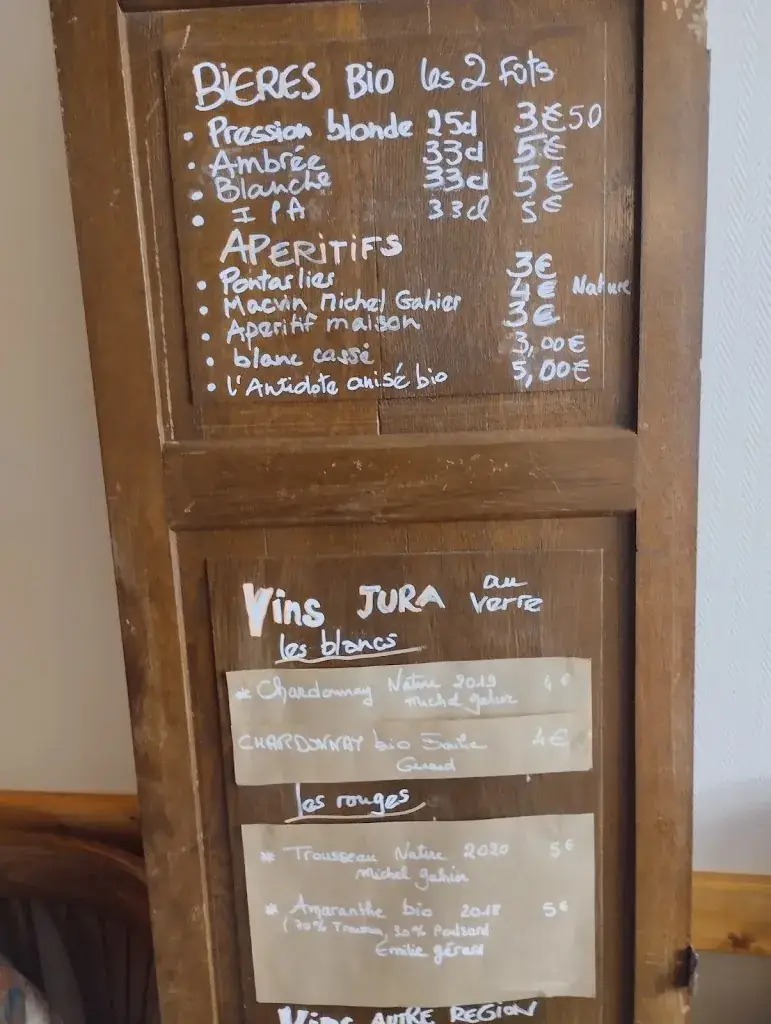 BIERES BIO les 2 Fûts
• Pression blonde 25cl 3€50
• Ambrée 33cl 5€
• Blanche 33cl 5€
• IPA 33cl 5€
APERITIFS
• Pontarlier 3€
• Macvin Michel Gahier 4€ Nature
• Aperitif maison 3€
• blanc cassé 3,00€
• l'Antidote anisé bio 5,00€
Vins JURA au verre
les blancs
* Chardonnay Nature 2019 4€
Michel gahier
CHARDONNAY bio 4€
Gerard
les rouges
* Trousseau Nature 2020 5€
Michel gahier
* Amaranthe bio 2018 5€
(70% Trousseau, 30% Poulsard
Emilie gérard
Vins AUTRE REGION